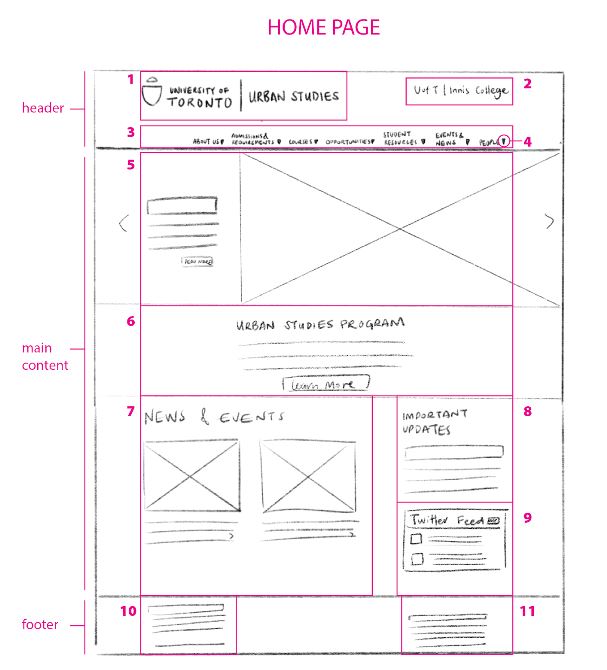 HOME PAGE
header
1
UNIVERSITY OF
TORONTO
URBAN STUDIES
2
UofT | Innis College
3
ABOUT US
ADMISSIONS &
REQUIREMENTS
COURSES
OPPORTUNITIES
STUDENT
RESOURCES
EVENTS &
NEWS
PEOPLE
4
main
content
5
READ MORE
6
URBAN STUDIES PROGRAM
Learn More
7
NEWS & EVENTS
8
IMPORTANT
UPDATES
9
Twitter Feed
footer
10
11